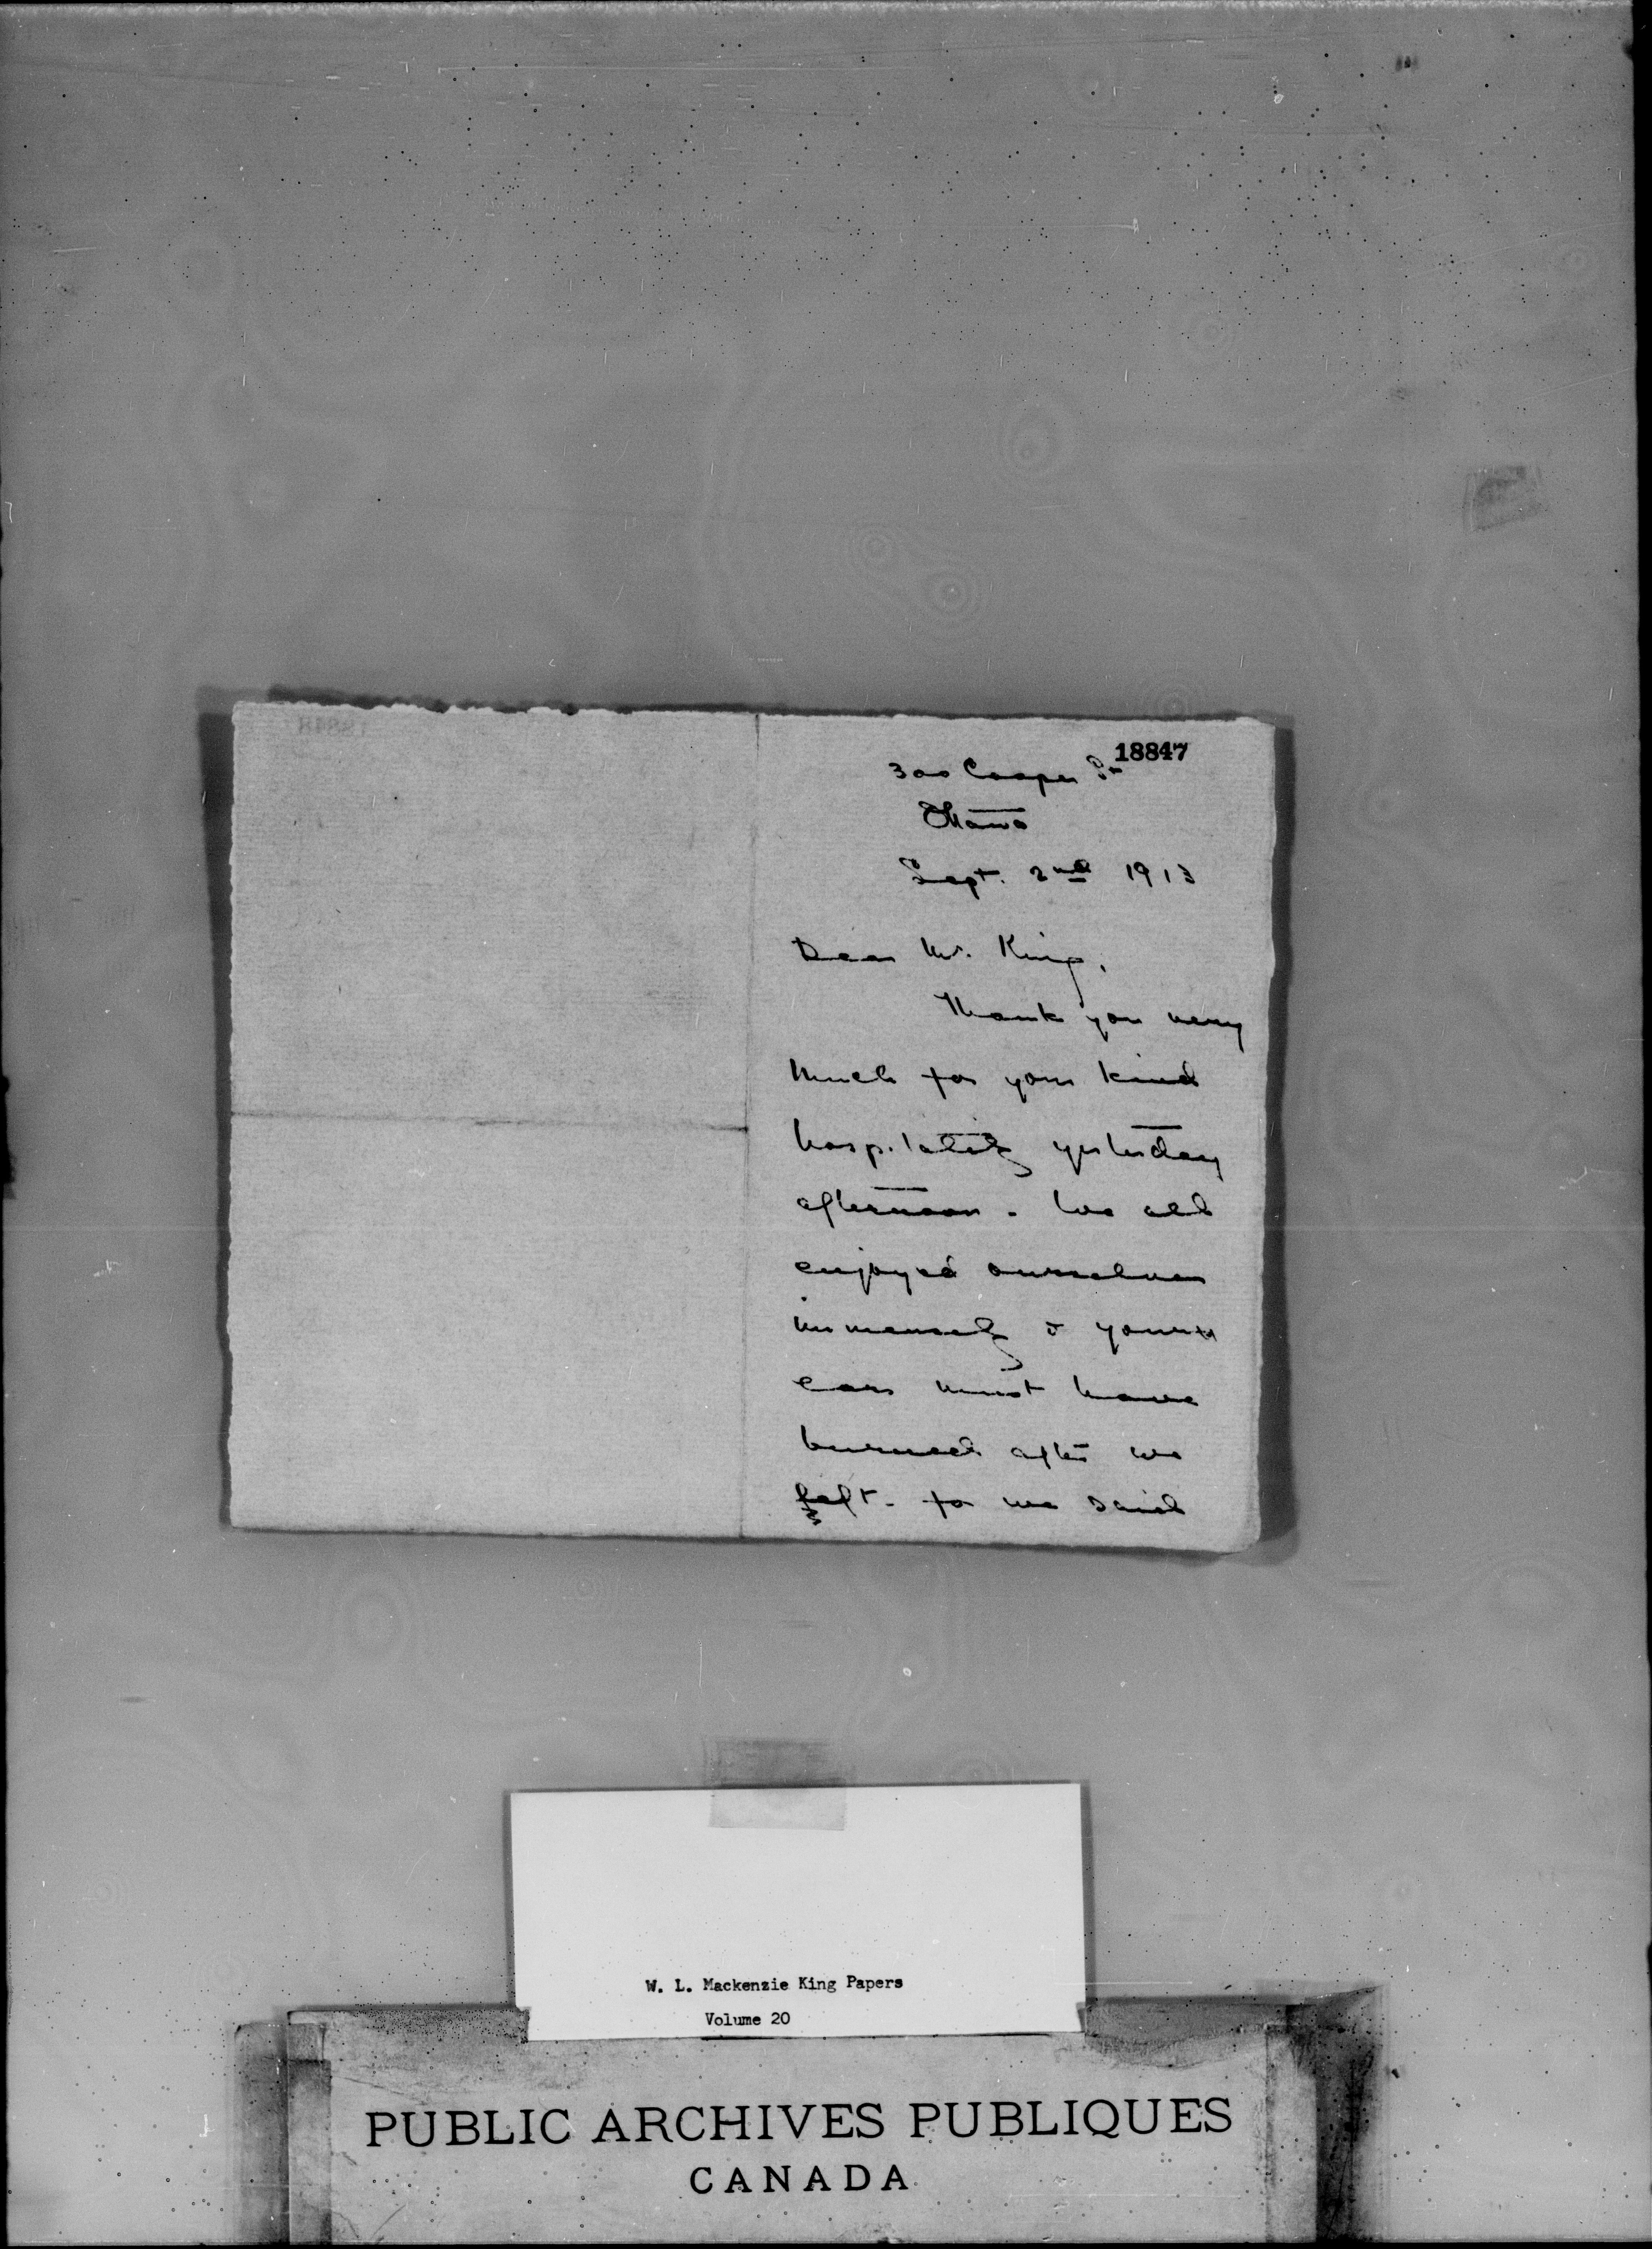 18847
300 Cooper St
Ottawa
Sept. 2nd 1913
Dear Mr. King,
Thank you very
much for your kind
hospitality yesterday
afternoon. We all
enjoyed ourselves
immensely & your
ears must have
burned after we
left. for we said
W. L. Mackenzie King Papers
Volume 20
PUBLIC ARCHIVES PUBLIQUES
CANADA